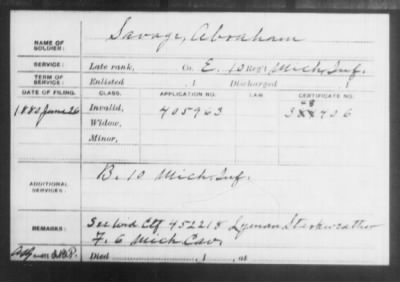 NAME OF SOLDIER: Savage, Abraham
SERVICE: Late rank, Co. E, 10 Reg't Mich. Inf.
TERM OF SERVICE: Enlisted , 1 Discharged , 1
DATE OF FILING. CLASS. APPLICATION NO. LAW. CERTIFICATE NO.
1880 June 26 Invalid, 405963
Widow,
Minor,
ADDITIONAL SERVICES: B. 10 Mich. Inf.
REMARKS: See Wid. Ctf. 452215 Lyman Starkweather
F. 6 Mich Cav.
Died , 1 , at